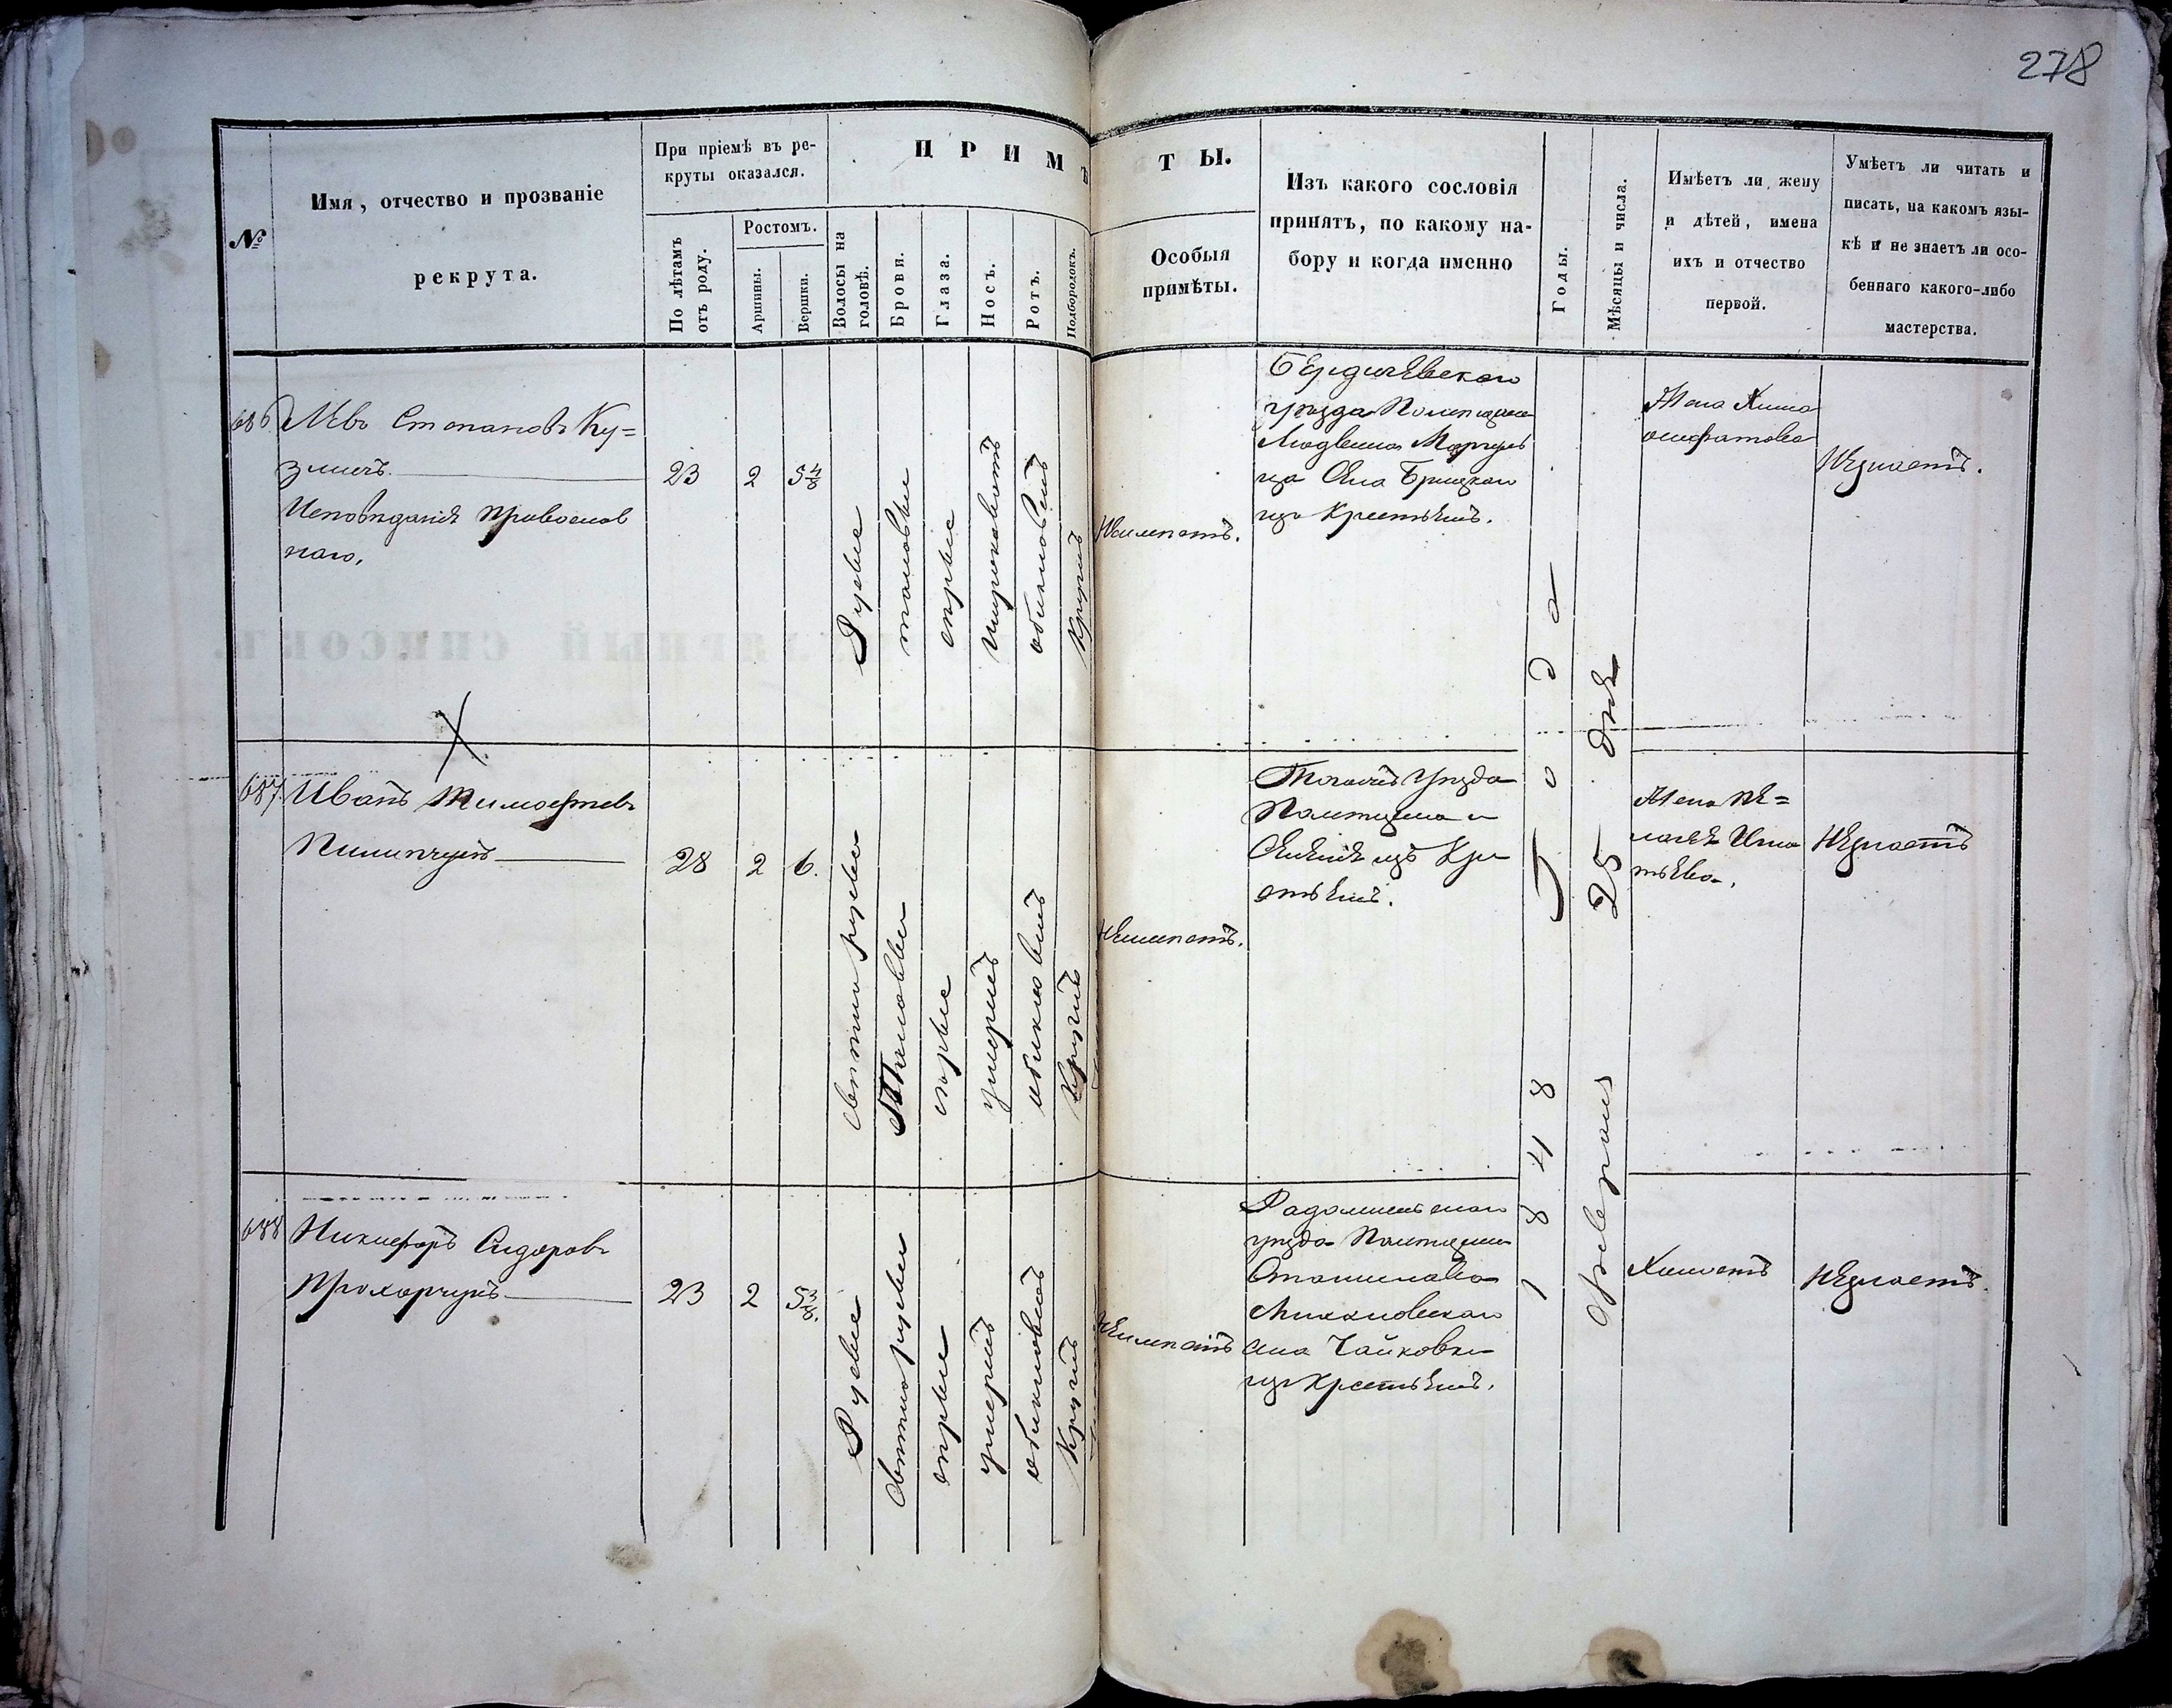 278
№
Имя, отчество и прозваніе
рекрута.
При пріемѣ въ ре-
круты оказался.
По лѣтамъ
отъ роду.
Ростомъ.
Аршины.
Вершки.
ПРИМѢТЫ.
Волосы на
головѣ.
Брови.
Глаза.
Носъ.
Ротъ.
Подбородокъ.
Особыя
примѣты.
Изъ какого сословія
принятъ, по какому на-
бору и когда именно
Годы.
Мѣсяцы и числа.
Имѣетъ ли жену
и дѣтей, имена
ихъ и отчество
первой.
Умѣетъ ли читать и
писать, на какомъ язы-
кѣ и не знаетъ ли осо-
беннаго какого-либо
мастерства.
686
Левъ Степановъ Ку=
змичъ.
Исповѣданія православ
наго.
23
2
5 4/8
Русые
таковыи
сѣрые
широковатъ
обикновенъ
Круглъ
Неимѣетъ.
Бердичевскаго
уѣзда Помещика
из Крестьянъ.
Жена
Незнаетъ.
687
Иванъ Тимофѣевъ
Пилипчукъ
28
2
6.
свѣтлорусыи
Таковыи
карые
умѣренъ
обикновенъ
Круглъ
Неимѣетъ.
Того же Уѣзда
Помещика
изъ Кре
стьянъ.
Жена Пе=
лагея Игна
тьева.
Незнаетъ
688
Никифоръ Сидоровъ
Прохорчукъ
23
2
5 3/8.
Русые
свѣтлорусыи
сѣрые
умѣренъ
обикновенъ
Круглъ
Неимѣетъ
Радомысльскаго
уѣзда Помещика
Станислава
села Чайковки
изъ Крестьянъ.
1848 Года
февраля 25 дня
Холостъ
Незнаетъ.